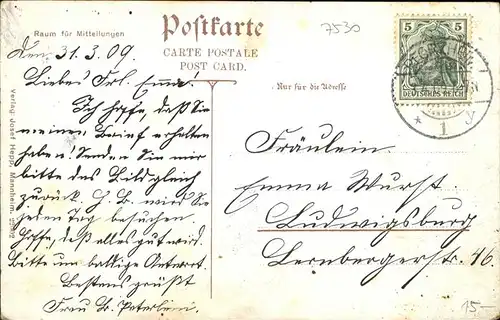 Raum für Mitteilungen
Postkarte
CARTE POSTALE
POST CARD.
Nur für die Adresse
7530
5 5
DEUTSCHES REICH
* 1 y
Den 31.3.09.
Liebes Frl. Emma!
Ich hoffe, daß Sie
meinen Brief erhalten
haben! Senden Sie mir
bitte das Bild gleich
zurück. H. B. wird Sie
jeden Tag besuchen.
Hoffe, daß alles gut wird.
Bitte um baldige Antwort.
Bestens grüßt
Frau
Fräulein
Emma Wurst
Ludwigsburg
Lernbergerstr. 46
15.-
Verlag Josef Hepp, Mannheim.